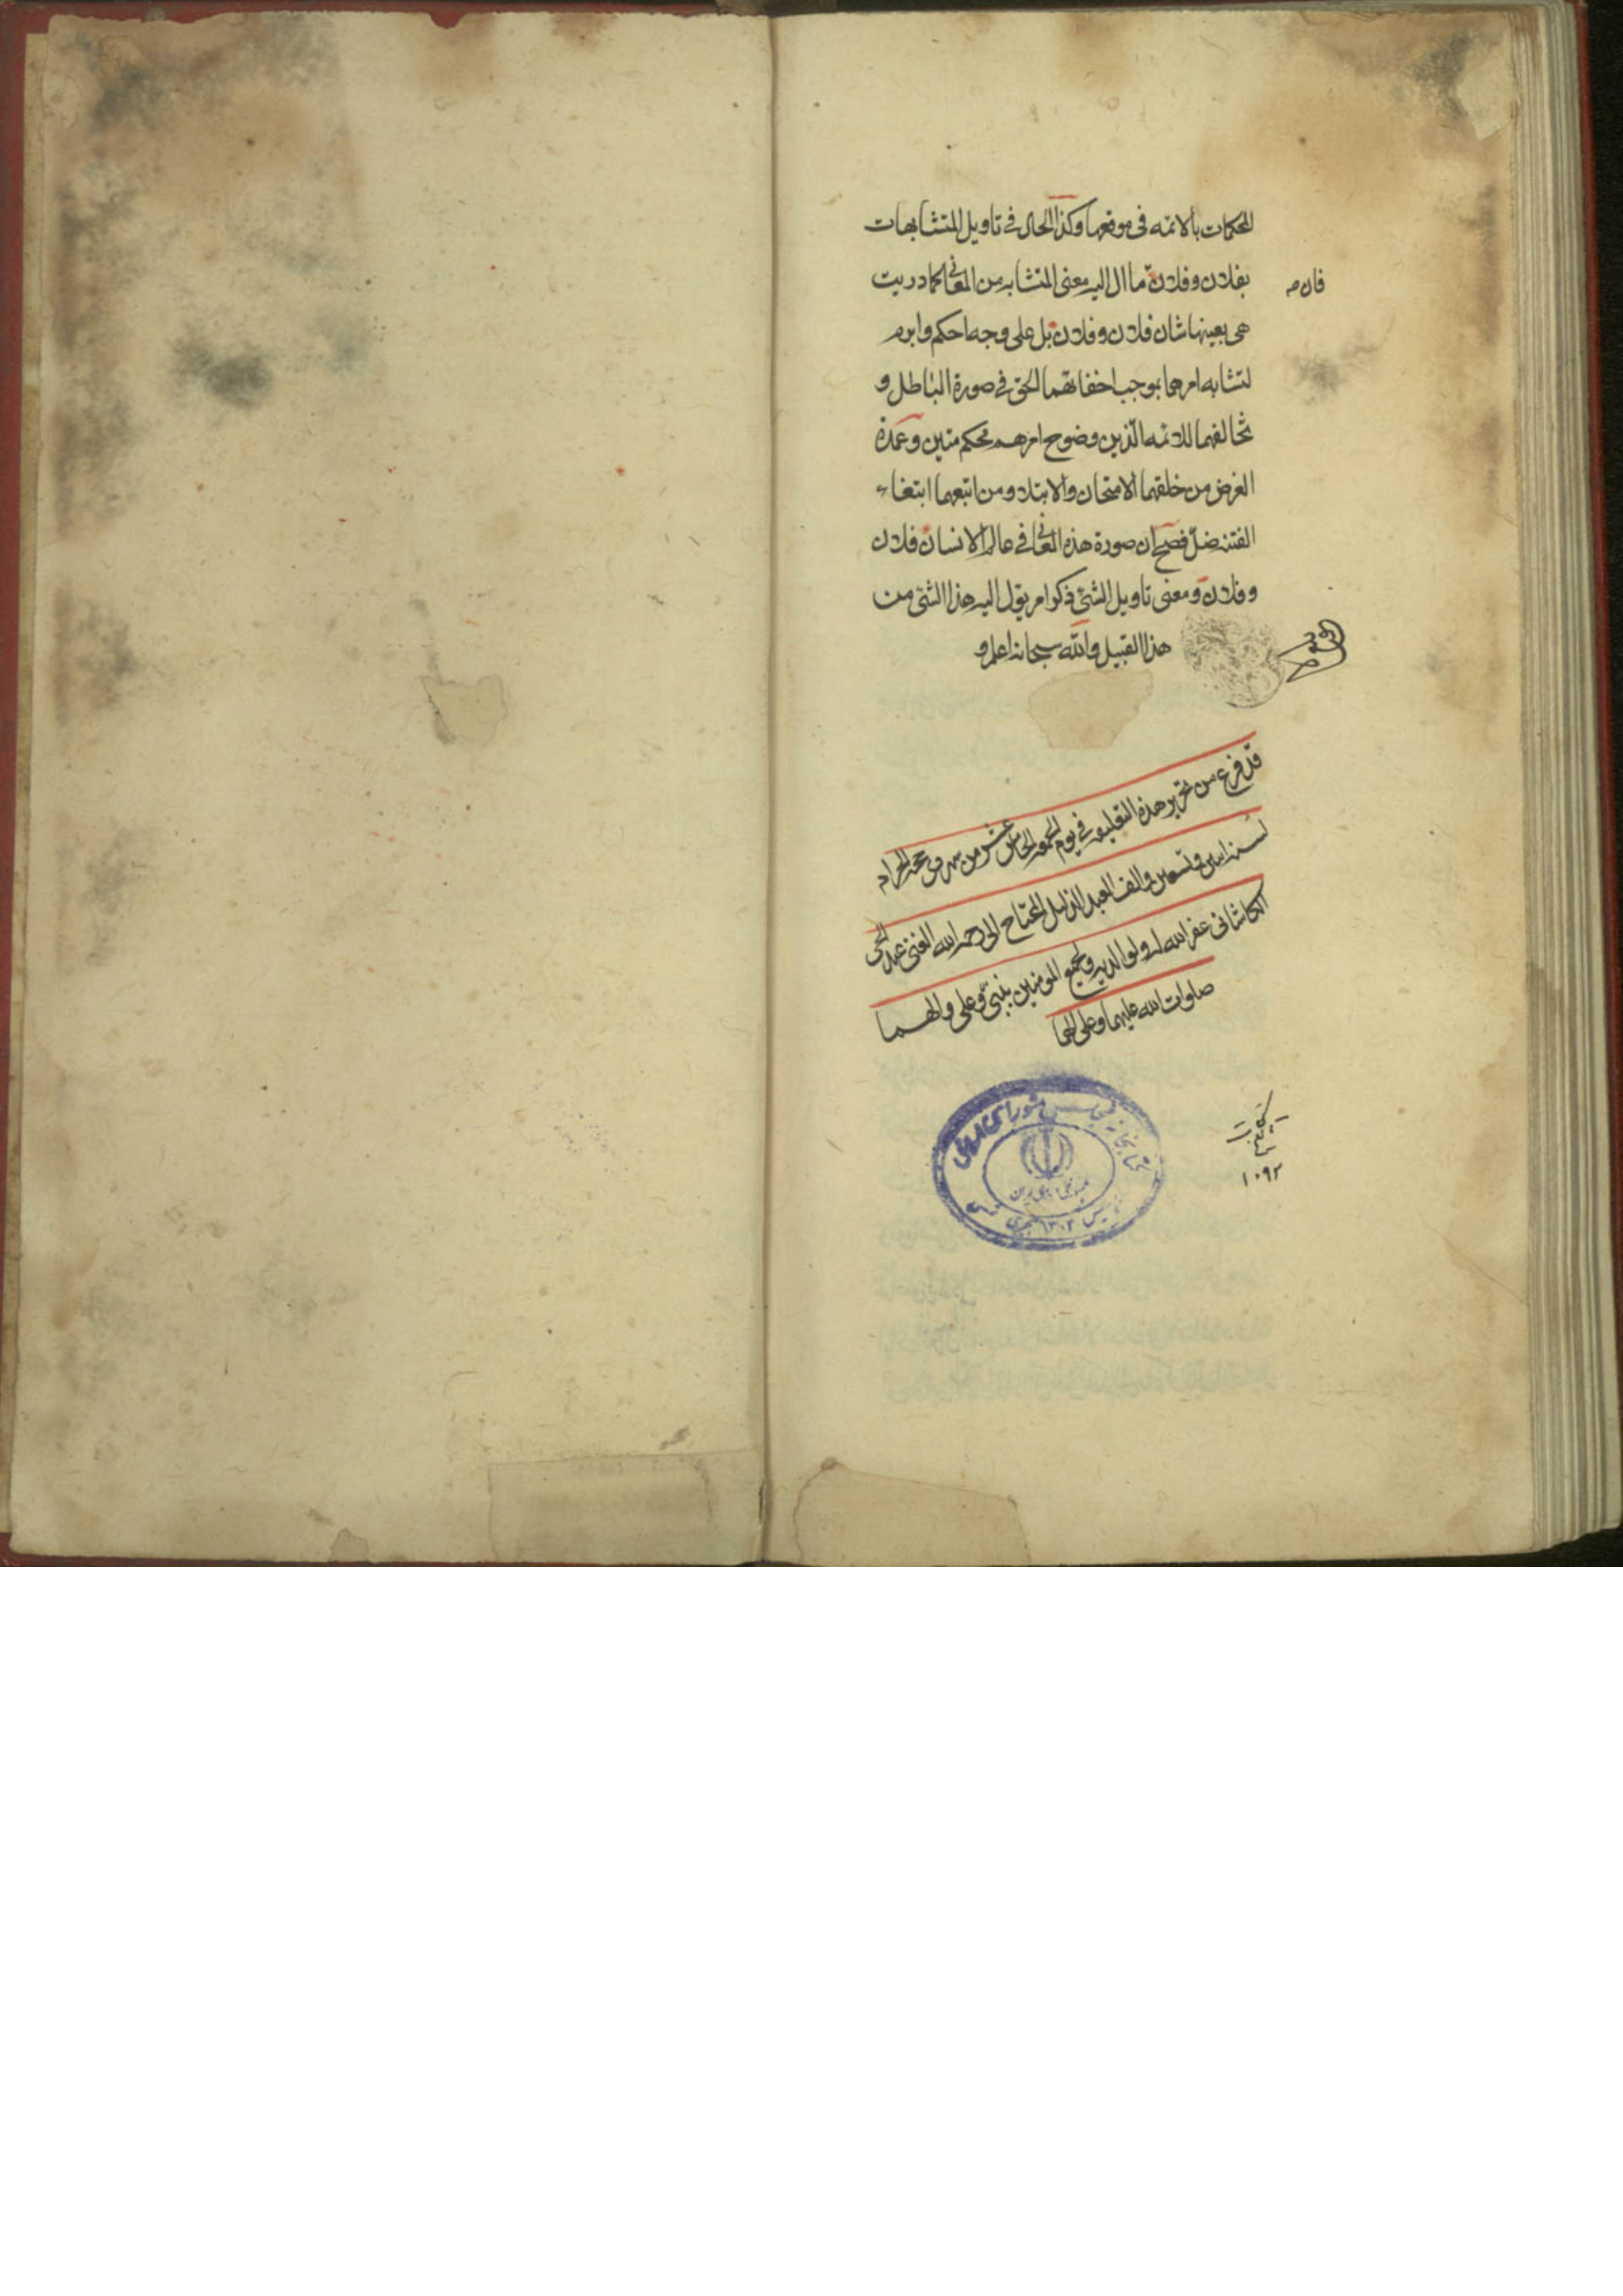 المحكمات بالائمه فی موقعها وكذا الحال فی تاویل المتشابهات
بفلان وفلان ما ال الیه معنی المتشابه من المعانی كما دریت
فان
هی بعینها شان فلان وفلان بل علی وجه احكم وابرم
لتشابه امرهما بموجب اخفائهما الحق فی صورة الباطل و
تخالفهما للائمه الذین وضوح امرهم محكم متین وعمدة
الغرض من خلقهما الامتحان والابتلا ومن اتبعهما ابتغاء
الفتنه ضلّ فصح ان صورة هذه المعانی فی عالم الانسان فلان
وفلان ومعنی تاویل الشئ ذكر امر یؤل الیه هذا الشئ من
هذا القبیل والله سبحانه اعلم و
قد فرغ من تحریر هذه التعلیقه فی یوم الجمعه الخامس عشر من شهر محرم الحرام
لسنه اثنین وتسعین والف العبد الذلیل المحتاج الی رحمه الله الغنی
الكاشانی عفر الله له ولوالدیه ولجمیع المومنین بنبی وعلی والهما
صلوات الله علیهما وعلی الهما
كتابخانه مجلس شورای اسلامی
۱۳۰۲
۱۰۹۲